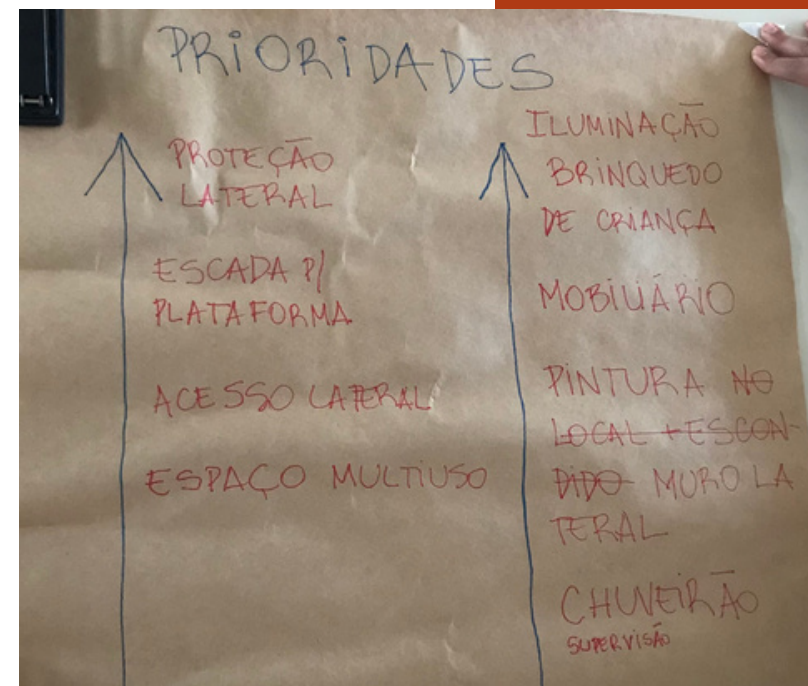 PRIORIDADES
PROTEÇÃO
LATERAL
ESCADA P/
PLATAFORMA
ACESSO LATERAL
ESPAÇO MULTIUSO
ILUMINAÇÃO
BRINQUEDO
DE CRIANÇA
MOBILIÁRIO
PINTURA NO
LOCAL + ESCON-
DIDO MURO LA
TERAL
CHUVEIRÃO
SUPERVISÃO